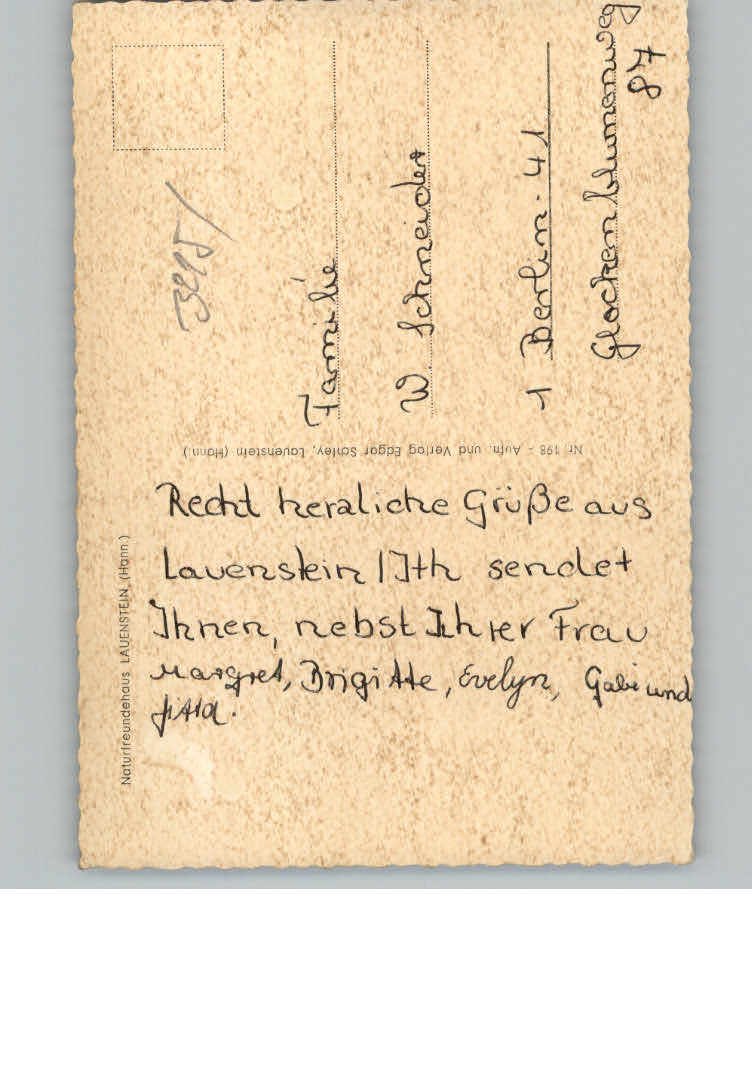 3295/
Familie
W. Schneider
1 Berlin. 41
Glockenblumenweg
87
Nr. 198 - Aufn. und Verlag Edgar Schley, Lauenstein (Hann.)
Naturfreundehaus LAUENSTEIN, (Hann.)
Recht herzliche Grüße aus
Lauenstein / Ith sendet
Ihnen, nebst Ihrer Frau
Margret, Brigitte, Evelyn, Gabi und
Jutta.